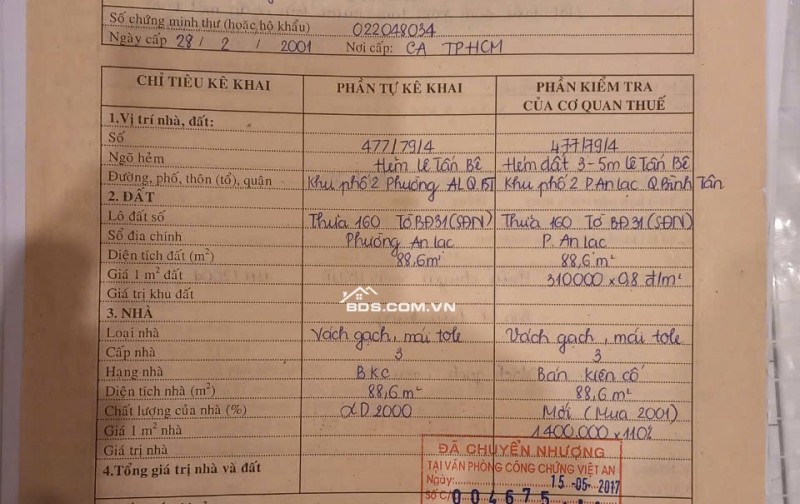 Số chứng minh thư (hoặc hộ khẩu) 022048034
Ngày cấp 28 / 2 / 2001 Nơi cấp: CA TPHCM
CHỈ TIÊU KÊ KHAI PHẦN TỰ KÊ KHAI PHẦN KIỂM TRA
CỦA CƠ QUAN THUẾ
1.Vị trí nhà, đất:
Số 477/79/4 477/79/4
Ngõ hẻm Hẻm Lê Tấn Bê Hẻm đất 3-5m Lê Tấn Bê
Đường, phố, thôn (tổ), quận Khu phố 2 Phường AL Q.BT Khu phố 2 P.An lạc Q.Bình Tân
2. ĐẤT
Lô đất số Thửa 160 Tờ BĐ31 (SĐN) Thửa 160 Tờ BĐ31 (SĐN)
Sổ địa chính Phường An lạc P. An lạc
Diện tích đất (m²) 88,6m² 88,6 m²
Giá 1 m² đất 310000 x 0,8 đ/m²
Giá trị khu đất
BDS.COM.VN
3. NHÀ
Loại nhà Vách gạch, mái tole Vách gạch, mái tole
Cấp nhà 3 3
Hạng nhà BKC Bán kiên cố
Diện tích nhà (m²) 88,6 m² 88,6 m²
Chất lượng của nhà (%) 2000 Mới (Mua 2001)
Giá 1 m² nhà 1400.000 x 110%
Giá trị nhà
4.Tổng giá trị nhà và đất
ĐÃ CHUYỂN NHƯỢNG
TẠI VĂN PHÒNG CÔNG CHỨNG VIỆT AN
Ngày: 15 -05- 2017
Số C/ 004675